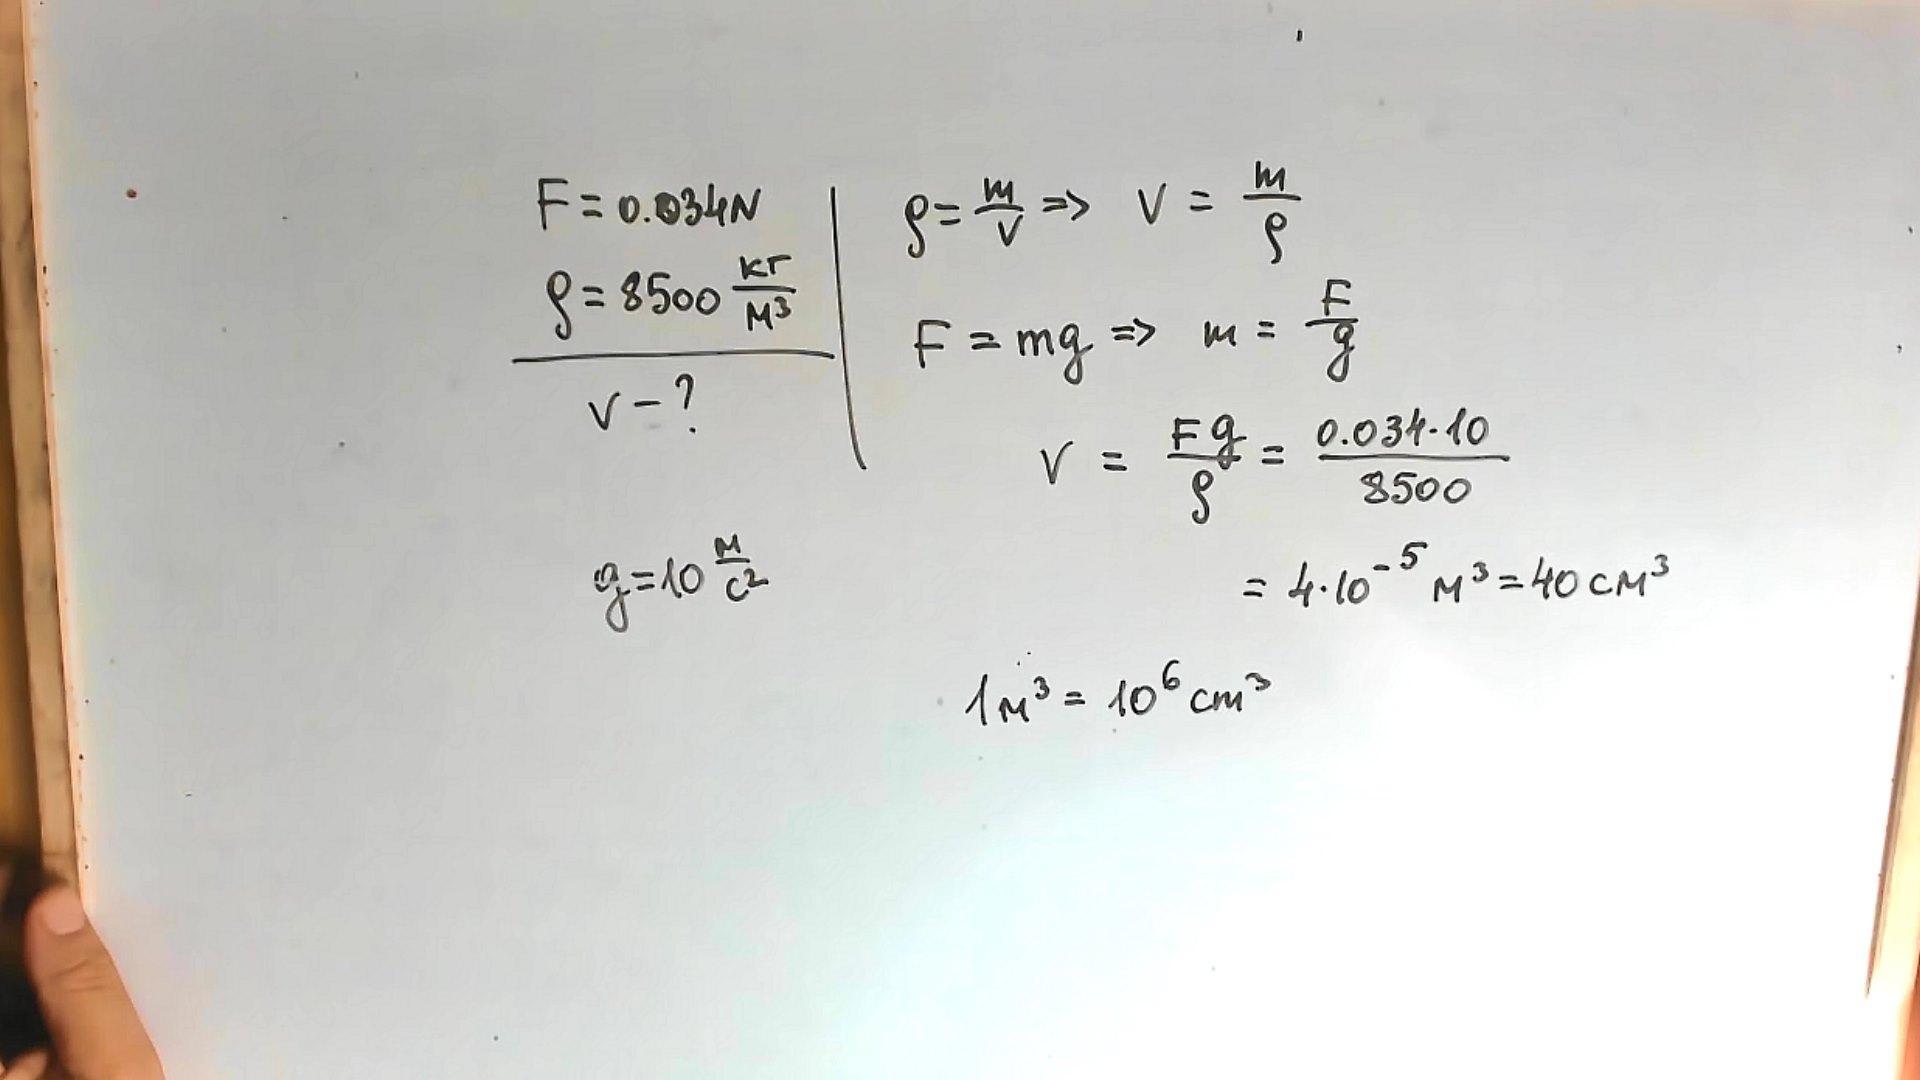 F = 0.034N
ρ = 8500 кг/м³
V - ?
g = 10 м/с²
ρ = m/V => V = m/ρ
F = mg => m = F/g
V = Fg/ρ = 0.034·10/8500
= 4·10⁻⁵ м³ = 40 см³
1м³ = 10⁶ cm³